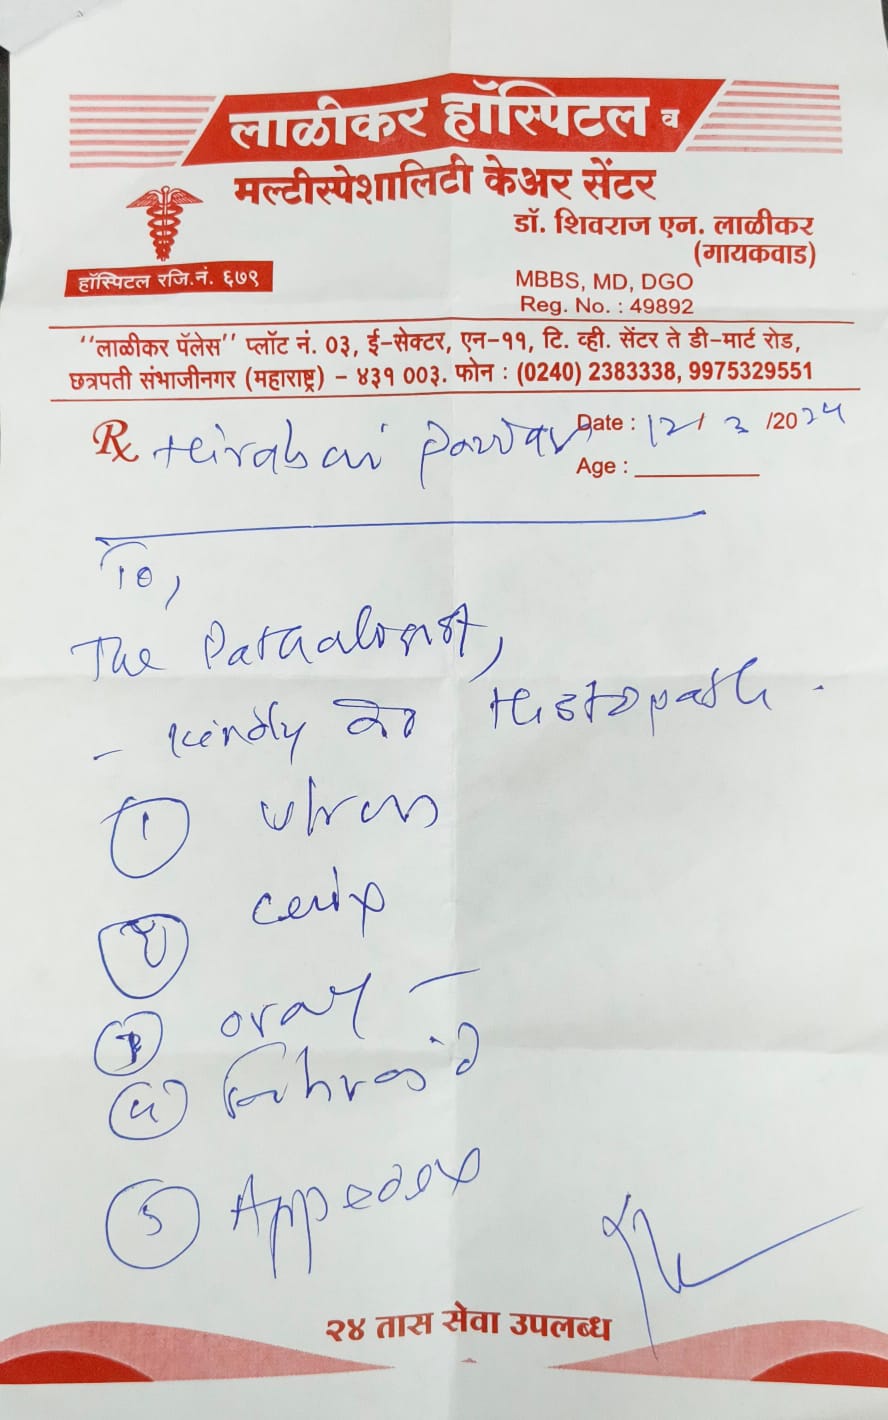 लाळीकर हॉस्पिटल व
मल्टीस्पेशालिटी केअर सेंटर
डॉ. शिवराज एन. लाळीकर
(गायकवाड)
हॉस्पिटल रजि.नं. ६७९
MBBS, MD, DGO
Reg. No. : 49892
"लाळीकर पॅलेस" प्लॉट नं. 03, ई-सेक्टर, एन-११, टि. व्ही. सेंटर ते डी-मार्ट रोड,
छत्रपती संभाजीनगर (महाराष्ट्र) - ४३१ 003. फोन : (0240) 2383338, 9975329551
Rx Hirabai Pawar Date : 12/3/2024
Age :
To,
The Pathalogist,
- Kindly do Histopath.
① Utrus
② Cervix
③ Ovary -
④ Fibroid
⑤ Appedex
२४ तास सेवा उपलब्ध